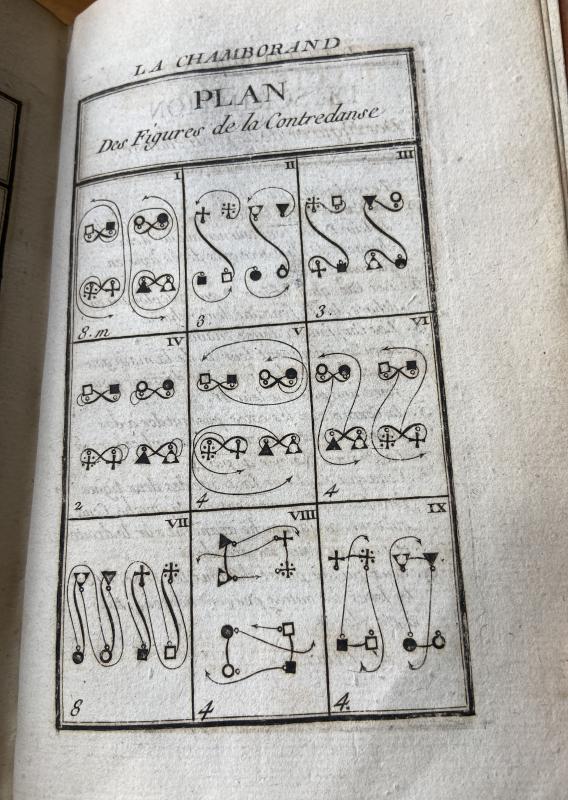 LA CHAMBORAND
PLAN
Des Figures de la Contredanse
I
II
III
8. m
3
3.
IV
V
VI
2
4
4
VII
VIII
IX
8
4
4.